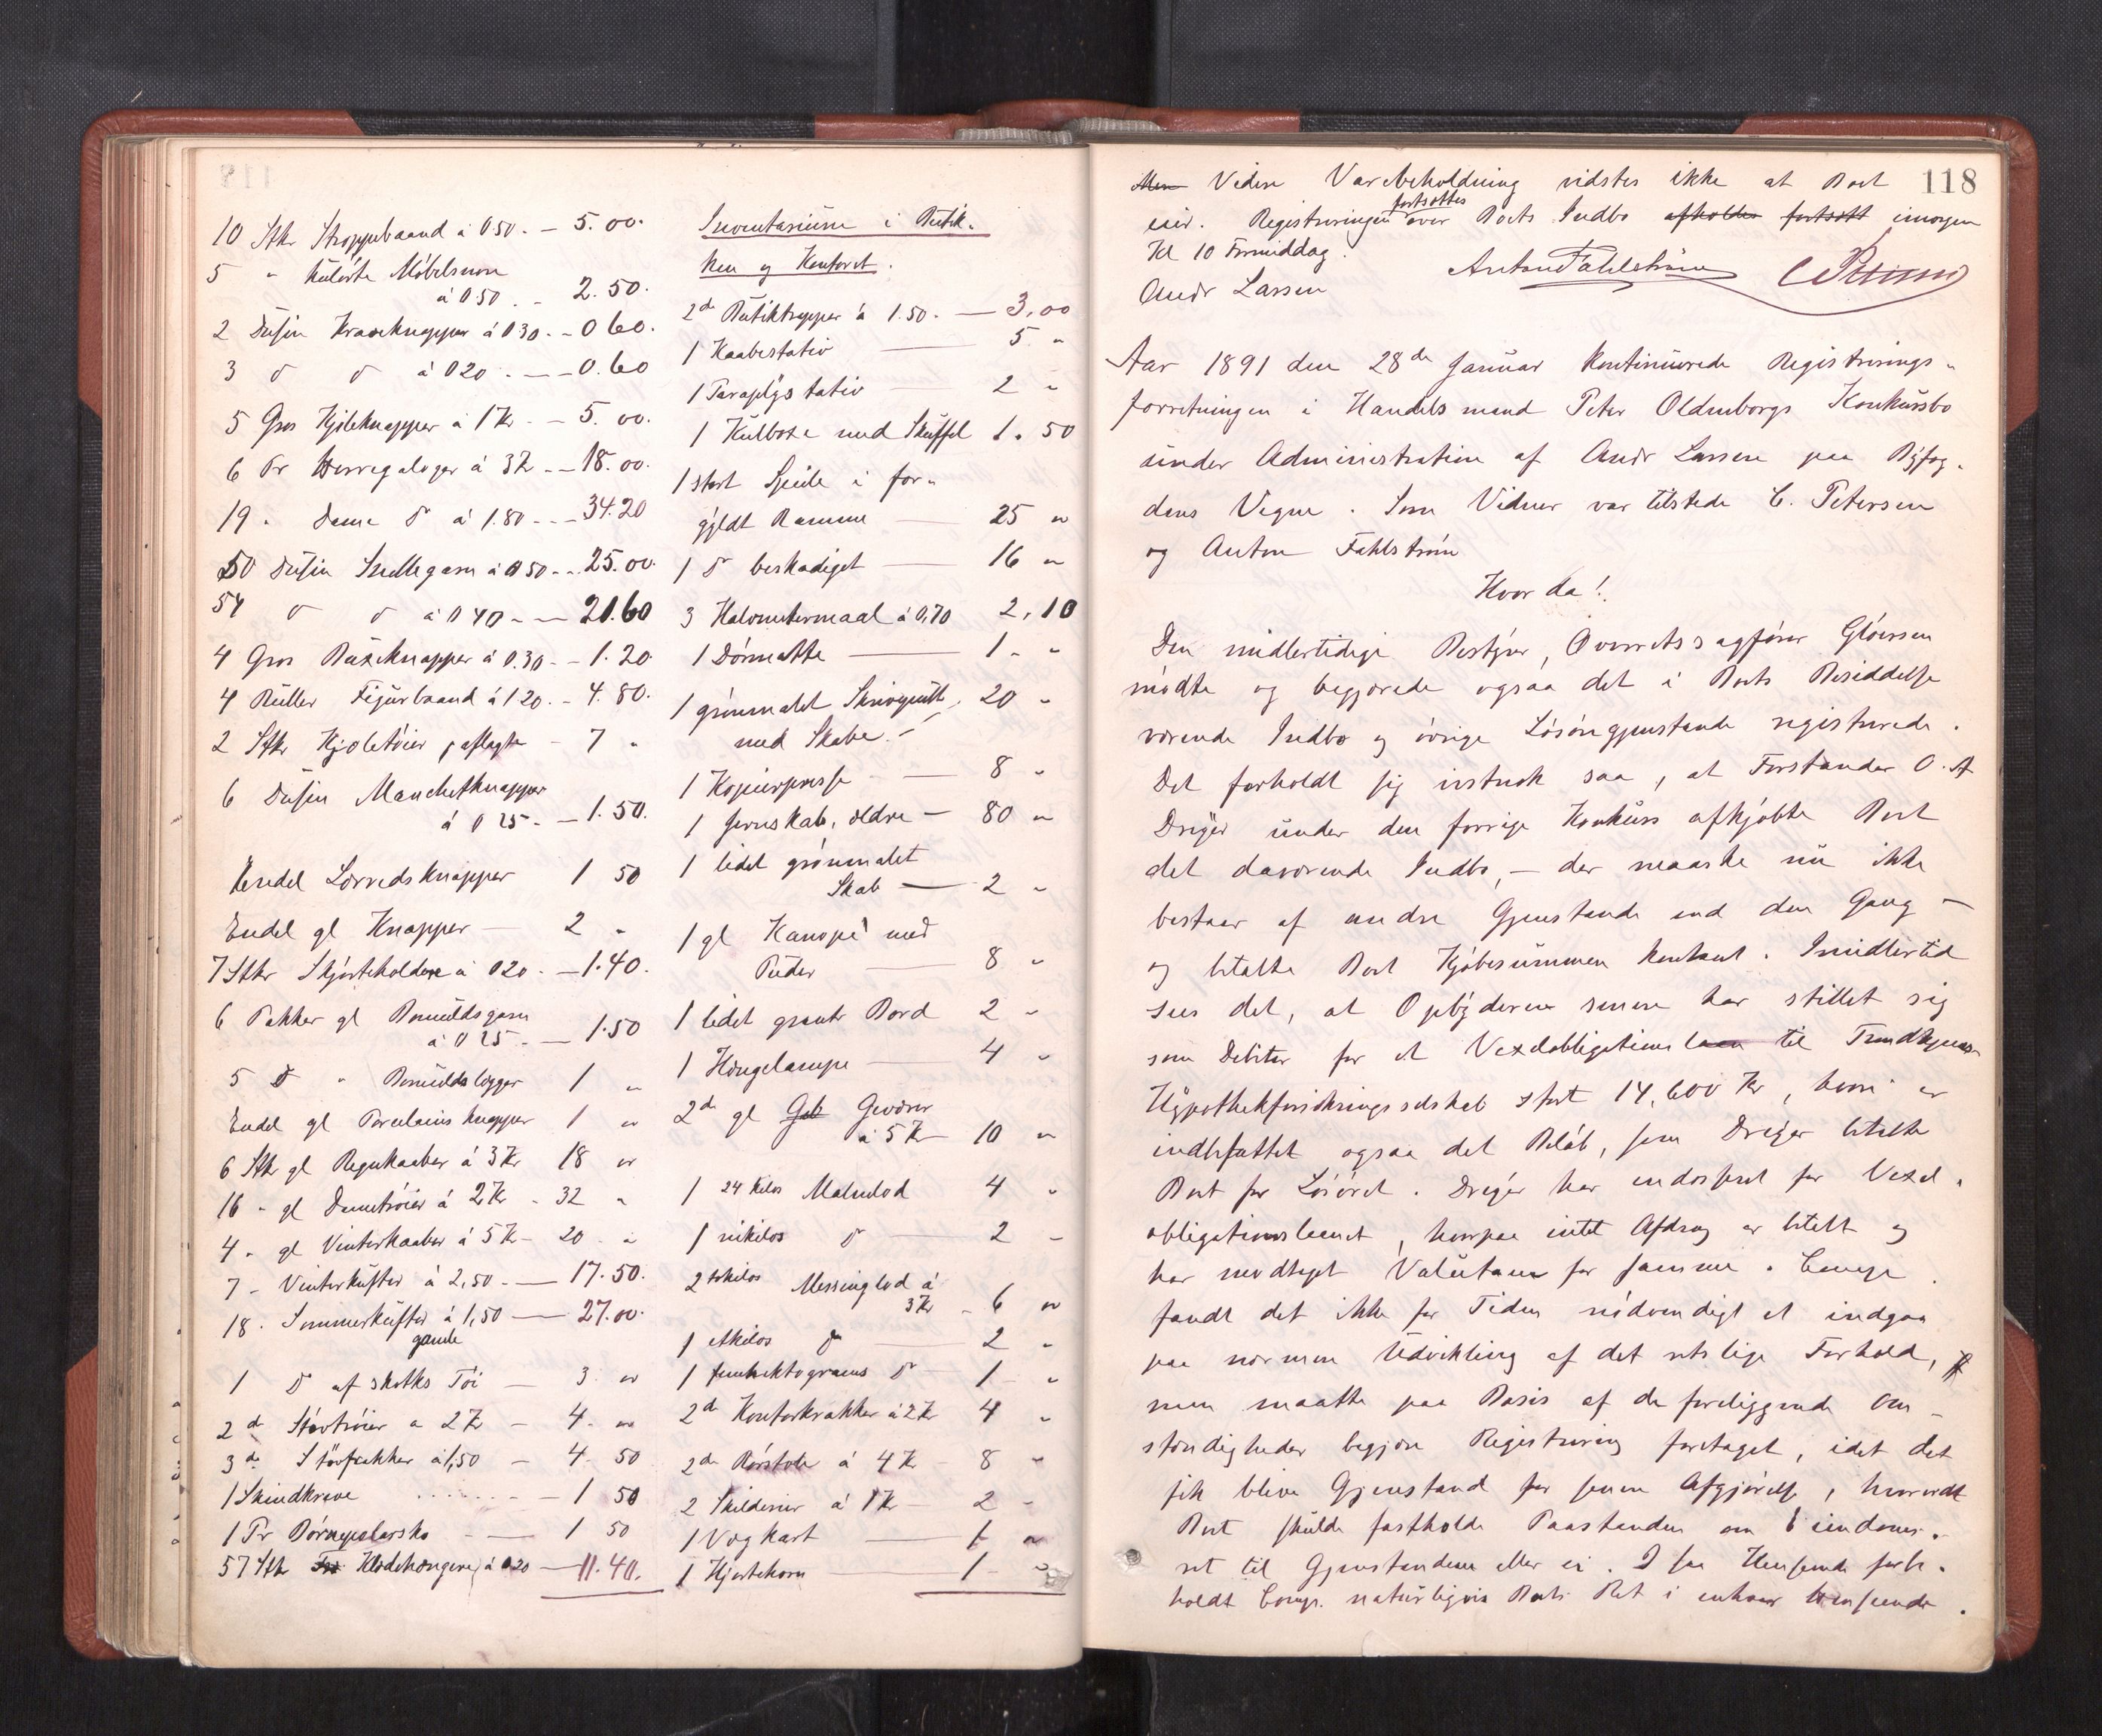 10 Stkr Stroppebaand á 050. — 5.00.
5 " kulørte Møbelsnore
á 050. - 2.50.
2 Dusin Kraveknapper á 030. - 0 60.
3 d d á 020. — 0.60
5 Gros Kjoleknapper á 1 Kr. - 5.00.
6 Pr Herregaloger á 3 Kr - 18.00.
19 - Dame d á 1.80 - 34.20
50 Dusin Snellegarn á 050 - 25.00.
54 d d á 040 - 21.60
4 Gros Buxeknapper á 0.30 - 1.20.
4 Ruller Figurbaand á 1 20. - 4.80.
2 Stkr Kjoletøier, aflagte - 7 "
6 Dusin Manchetknapper
á 0 25 - 1.50.
Endel Lærredsknapper 1 50
Endel gl Knapper — 2 "
7 Stkr Skjørteholdere á 020. — 1.40.
6 Pakker gl Bomuldsgarn
á 0 25 - 1.50
5 d " Bomuldslogger 1 "
Endel gl Porcelains knapper 1 "
6 Stkr gl Regnkaaber á 3 Kr 18 "
16 - gl Dametrøier á 2 Kr - 32 "
4 - gl Vinterkaaber á 5 Kr - 20 "
7 - Vinterkufter á 2,50. — 17.50.
18. Sommerkufter á 1,50 — 27.00.
gamle
1 d af skotks Tøi — 3 "
2 de Støvtrøier a 2 Kr - 4. "
3 de Støvfrakker á 1,50 — 4. 50
1 Skindkrave - 1 50
1 Pr Børnepelssko - 1 50
57 Stk Klædehængere á 020 — 11.40.
Inventarium i Butik-
ken og Kontoret.
2 de Butiktrapper á 1.50. — 3,00
1 Kaabestativ — 5 "
1 Paraplystativ — 2 "
1 Kulboxe med Skuffel 1. 50
1 stort Speile i for-
gyldt Ramme — 25 "
1 d beskadiget — 16 "
3 Halvmetermaal á 0,70 2,10
1 Dørmatte — 1 - "
1 grønmalet Skrivepult 20 "
med Skabe
1 Kopierpresse — 8 "
1 Jernskab, ældre — 80 "
1 lidet grønmalet
Skab — 2 "
1 gl Kanopé med
Puder — 8 "
1 lidet graat Bord 2 "
1 Hængelampe — 4 "
2 de gl Geværer
á 5 Kr — 10 "
1 24 Kilos Malmlod 4 "
1 nikilos d — 2 -
2 tokilos Messinglod á
3 Kr - 6 "
1 etkilos d — 2 "
1 femhektograms d 1 - "
2 de Kontorkrakker á 2 Kr 4 "
2 de Rørstole á 4 Kr - 8 "
2 Skilderier á 1 Kr — 2 -
1 Vægkart — 1 "
1 Hjortehorn — 1 - "
118
Men Videre Varebeholdning vidstes ikke at Boet
fortsættes
eier. Registreringen over Boets Indbo afholdes fortsatt imorgen
Kl 10 Formiddag.
Andr Larsen Anton Fahlstrøm C Petersen
Aar 1891 den 28de Januar kontinuerede Registrerings-
forretningen i Handelsmand Peter Oldenborgs Konkursbo
under Administration af Andr Larsen paa Byfog-
dens Vegne. Som Vidner var tilstede C. Petersen
og Anton Fahlstrøm
Hvor da!
Den midlertidige Bestyrer, Overretssagfører Gløersen
mødte og begjærede ogsaa det i Boets Besiddelse
værende Indbo og øvrige Løsøregjenstande registrerede.
Det forholdt sig nok saa, at Forstander O. A
Dreyer under den forrige Konkurs afkjøbte Boet
det daværende Indbo, — der maaske nu ikke
bestaar af andre Gjenstande end den Gang —
og betalte Boet Kjøbesummen kontant. Imidlertid
sees det, at Opbyderen senere har stillet sig
som Debitor for et Vexelobligationslaan til Trondhjems
Hypothekforsikringsselskab stort 14,600 Kr, hvori er
indbefattet ogsaa det Beløb, som Dreyer betalte
Boet for Løsøret. Dreyer har endosseret for Vexel-
obligationslaanet, hvorpaa intet Afdrag er betalt og
har modtaget Valutaen for samme. Comp.
fandt det ikke for Tiden nødvendigt at indgaa
paa nærmere Udvikling af det retslige Forhold,
men maatte paa Basis af de foreliggende Om-
stændigheder begjære Registrering foretaget, idet det
fik blive Gjenstand for senere Afgjørelse, hvorvidt
Boet skulde fastholde Paastanden om Eiendoms-
ret til Gjenstandene eller ei. I saa Henseende forbe-
holdt Comp. naturligvis Boets Ret i enhver Henseende.